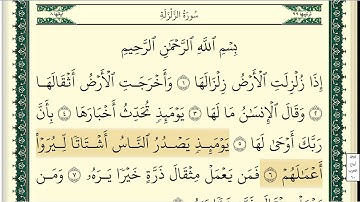 سُورَةُ الزَّلْزَلَةِ
بِسْمِ اللَّهِ الرَّحْمَٰنِ الرَّحِيمِ
إِذَا زُلْزِلَتِ الْأَرْضُ زِلْزَالَهَا ۝١ وَأَخْرَجَتِ الْأَرْضُ أَثْقَالَهَا
۝٢ وَقَالَ الْإِنسَانُ مَا لَهَا ۝٣ يَوْمَئِذٍ تُحَدِّثُ أَخْبَارَهَا ۝٤ بِأَنَّ
رَبَّكَ أَوْحَىٰ لَهَا ۝٥ يَوْمَئِذٍ يَصْدُرُ النَّاسُ أَشْتَاتًا لِّيُرَوْا
أَعْمَالَهُمْ ۝٦ فَمَن يَعْمَلْ مِثْقَالَ ذَرَّةٍ خَيْرًا يَرَهُ ۝٧ وَمَن